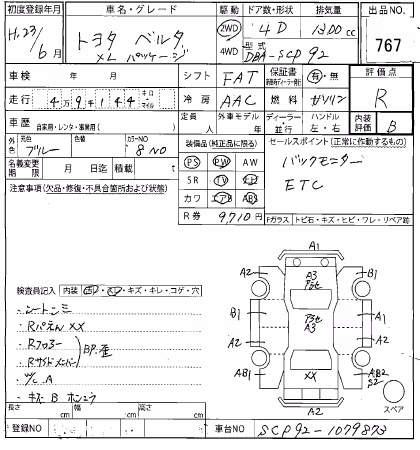 初度登録年月 車名・グレード 駆動 ドア数・形状 排気量 出品NO.
H.23/6月 トヨタ ベルタ 2WD 4D 1300cc 767
XLパッケージ 4WD 型式 DBA-SCP92
車検 年 月 シフト FAT 保証書 有・無 評価点
走行 4万9千144 キロ・マイル 冷房 AAC 燃料 ガソリン R
車歴 自家用・レンタ・事業用( ) 定員 人 外車モデル 年 ディーラー・並行 ハンドル 左・右 内装評価 B
外色 元色 ブルー 色替 カラーNO 8N0 装備品(純正品に限る) セールスポイント(正常に作動するもの)
名義変更期限 月 日迄 積載 t PS PW AW バックモニター
注意事項(欠品・修復・不具合箇所および状態) SR TV ナビ ETC
カワ エアB ABS
R券 9,710円 Fガラス トビ石・キズ・ヒビ・ワレ・リペア跡
A1
A2 A3 B1
検査員記入 内装 ・キズ・キレ・コゲ・穴
・シートシミ A1
・RパネルXX A3 A2
・Rフロアー A2
・Rサイドメンバー BP.歪
AB1 XX AB2
S2
・キズ B A2 スペア
長さ cm 幅 cm 高さ cm
登録NO 車台NO SCP92-1079873